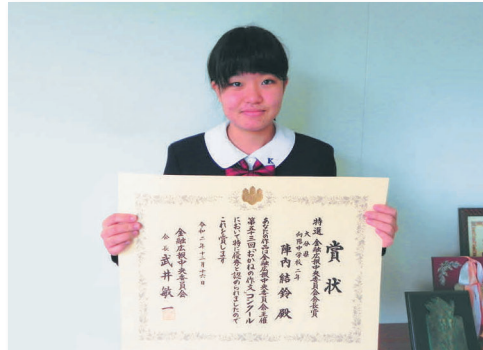 賞状
特選 金融広報中央委員会会長賞
大分県
向陽中学校 二年
陣内結鈴殿
あなたの作品は金融広報中央委員会主催
第五十三回「おかねの作文」コンクール
において特に優秀と認められましたので
これを賞します
令和二年十二月十六日
金融広報中央委員会
会長 武井敏一
K